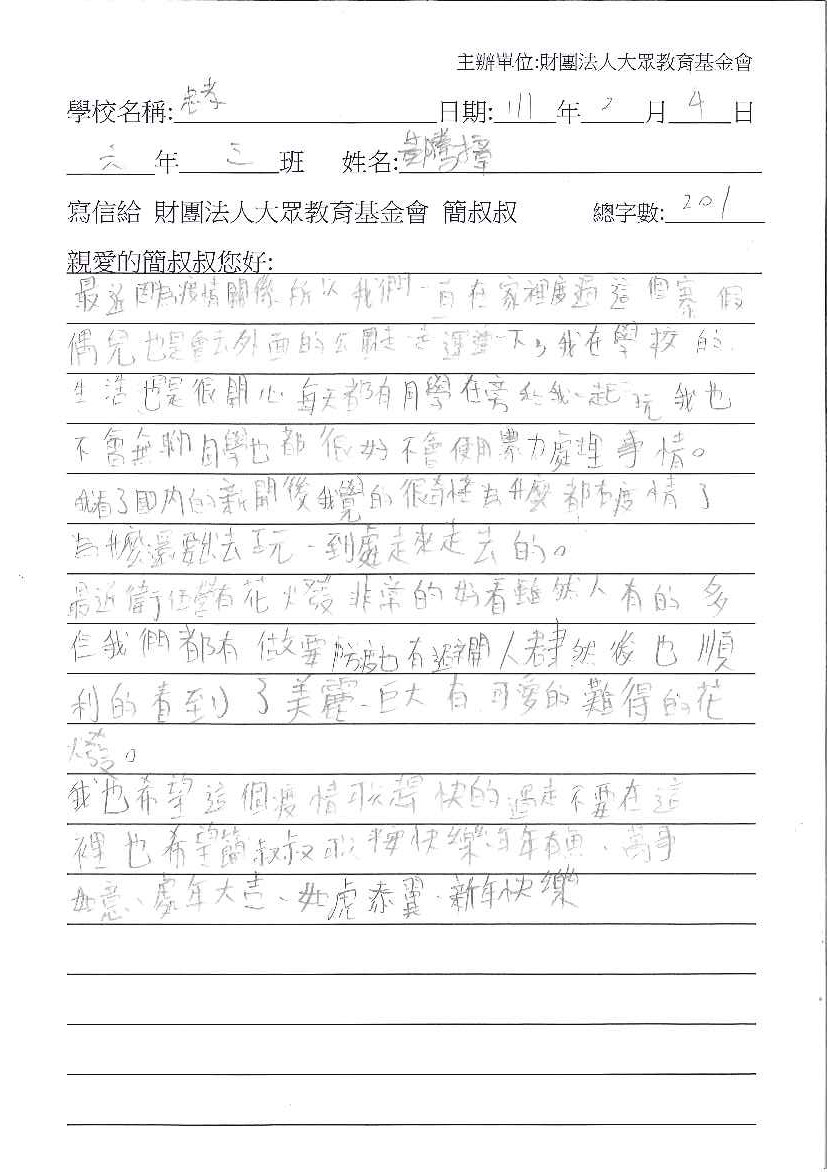 主辦單位:財團法人大眾教育基金會
學校名稱:忠孝 日期:111年2月4日
六年三班 姓名:黃騰擇
寫信給 財團法人大眾教育基金會 簡叔叔 總字數:201
親愛的簡叔叔您好:
最近因為疫情關係所以我們一直在家裡度過這個寒假
偶兒也是會去外面的公園走一走運動一下,我在學校的
生活也是很開心每天都有同學在旁和我一起玩我也
不會無聊同學也都很好不會使用暴力處理事情。
我看了國內的新聞後我覺的很奇怪為什麼都有疫情了
為什麼還要去玩、到處走來走去的。
最近衛武營有花燈非常的好看雖然人有的多
但我們都有做要防疫也有避開人群然後也順
利的看到了美麗、巨大有可愛的難得的花
燈。
我也希望這個疫情可以趕快的過走不要在這
裡也希望簡叔叔可以平安快樂、年年有魚、萬事
如意、虎年大吉、如虎添翼、新年快樂